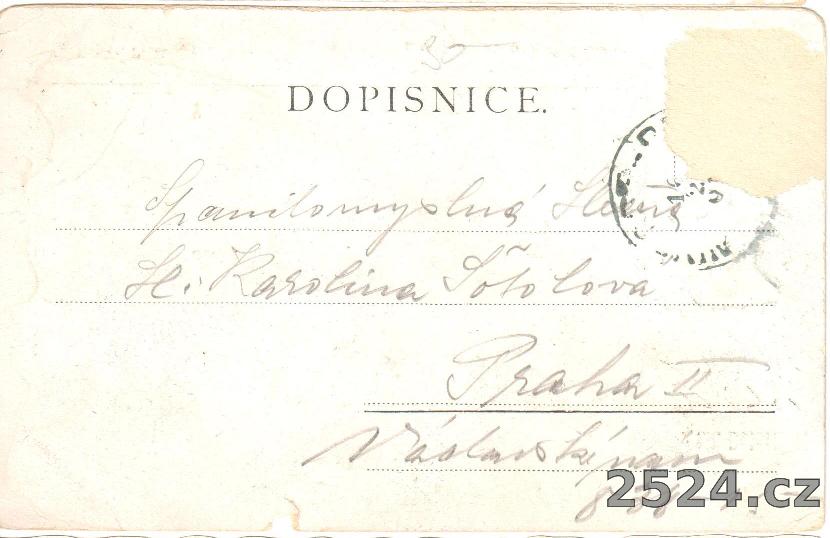 DOPISNICE.
Spanilomyslná Slečna
Sl. Karolina Sötolova
Praha II
Václavské nam
2524.cz